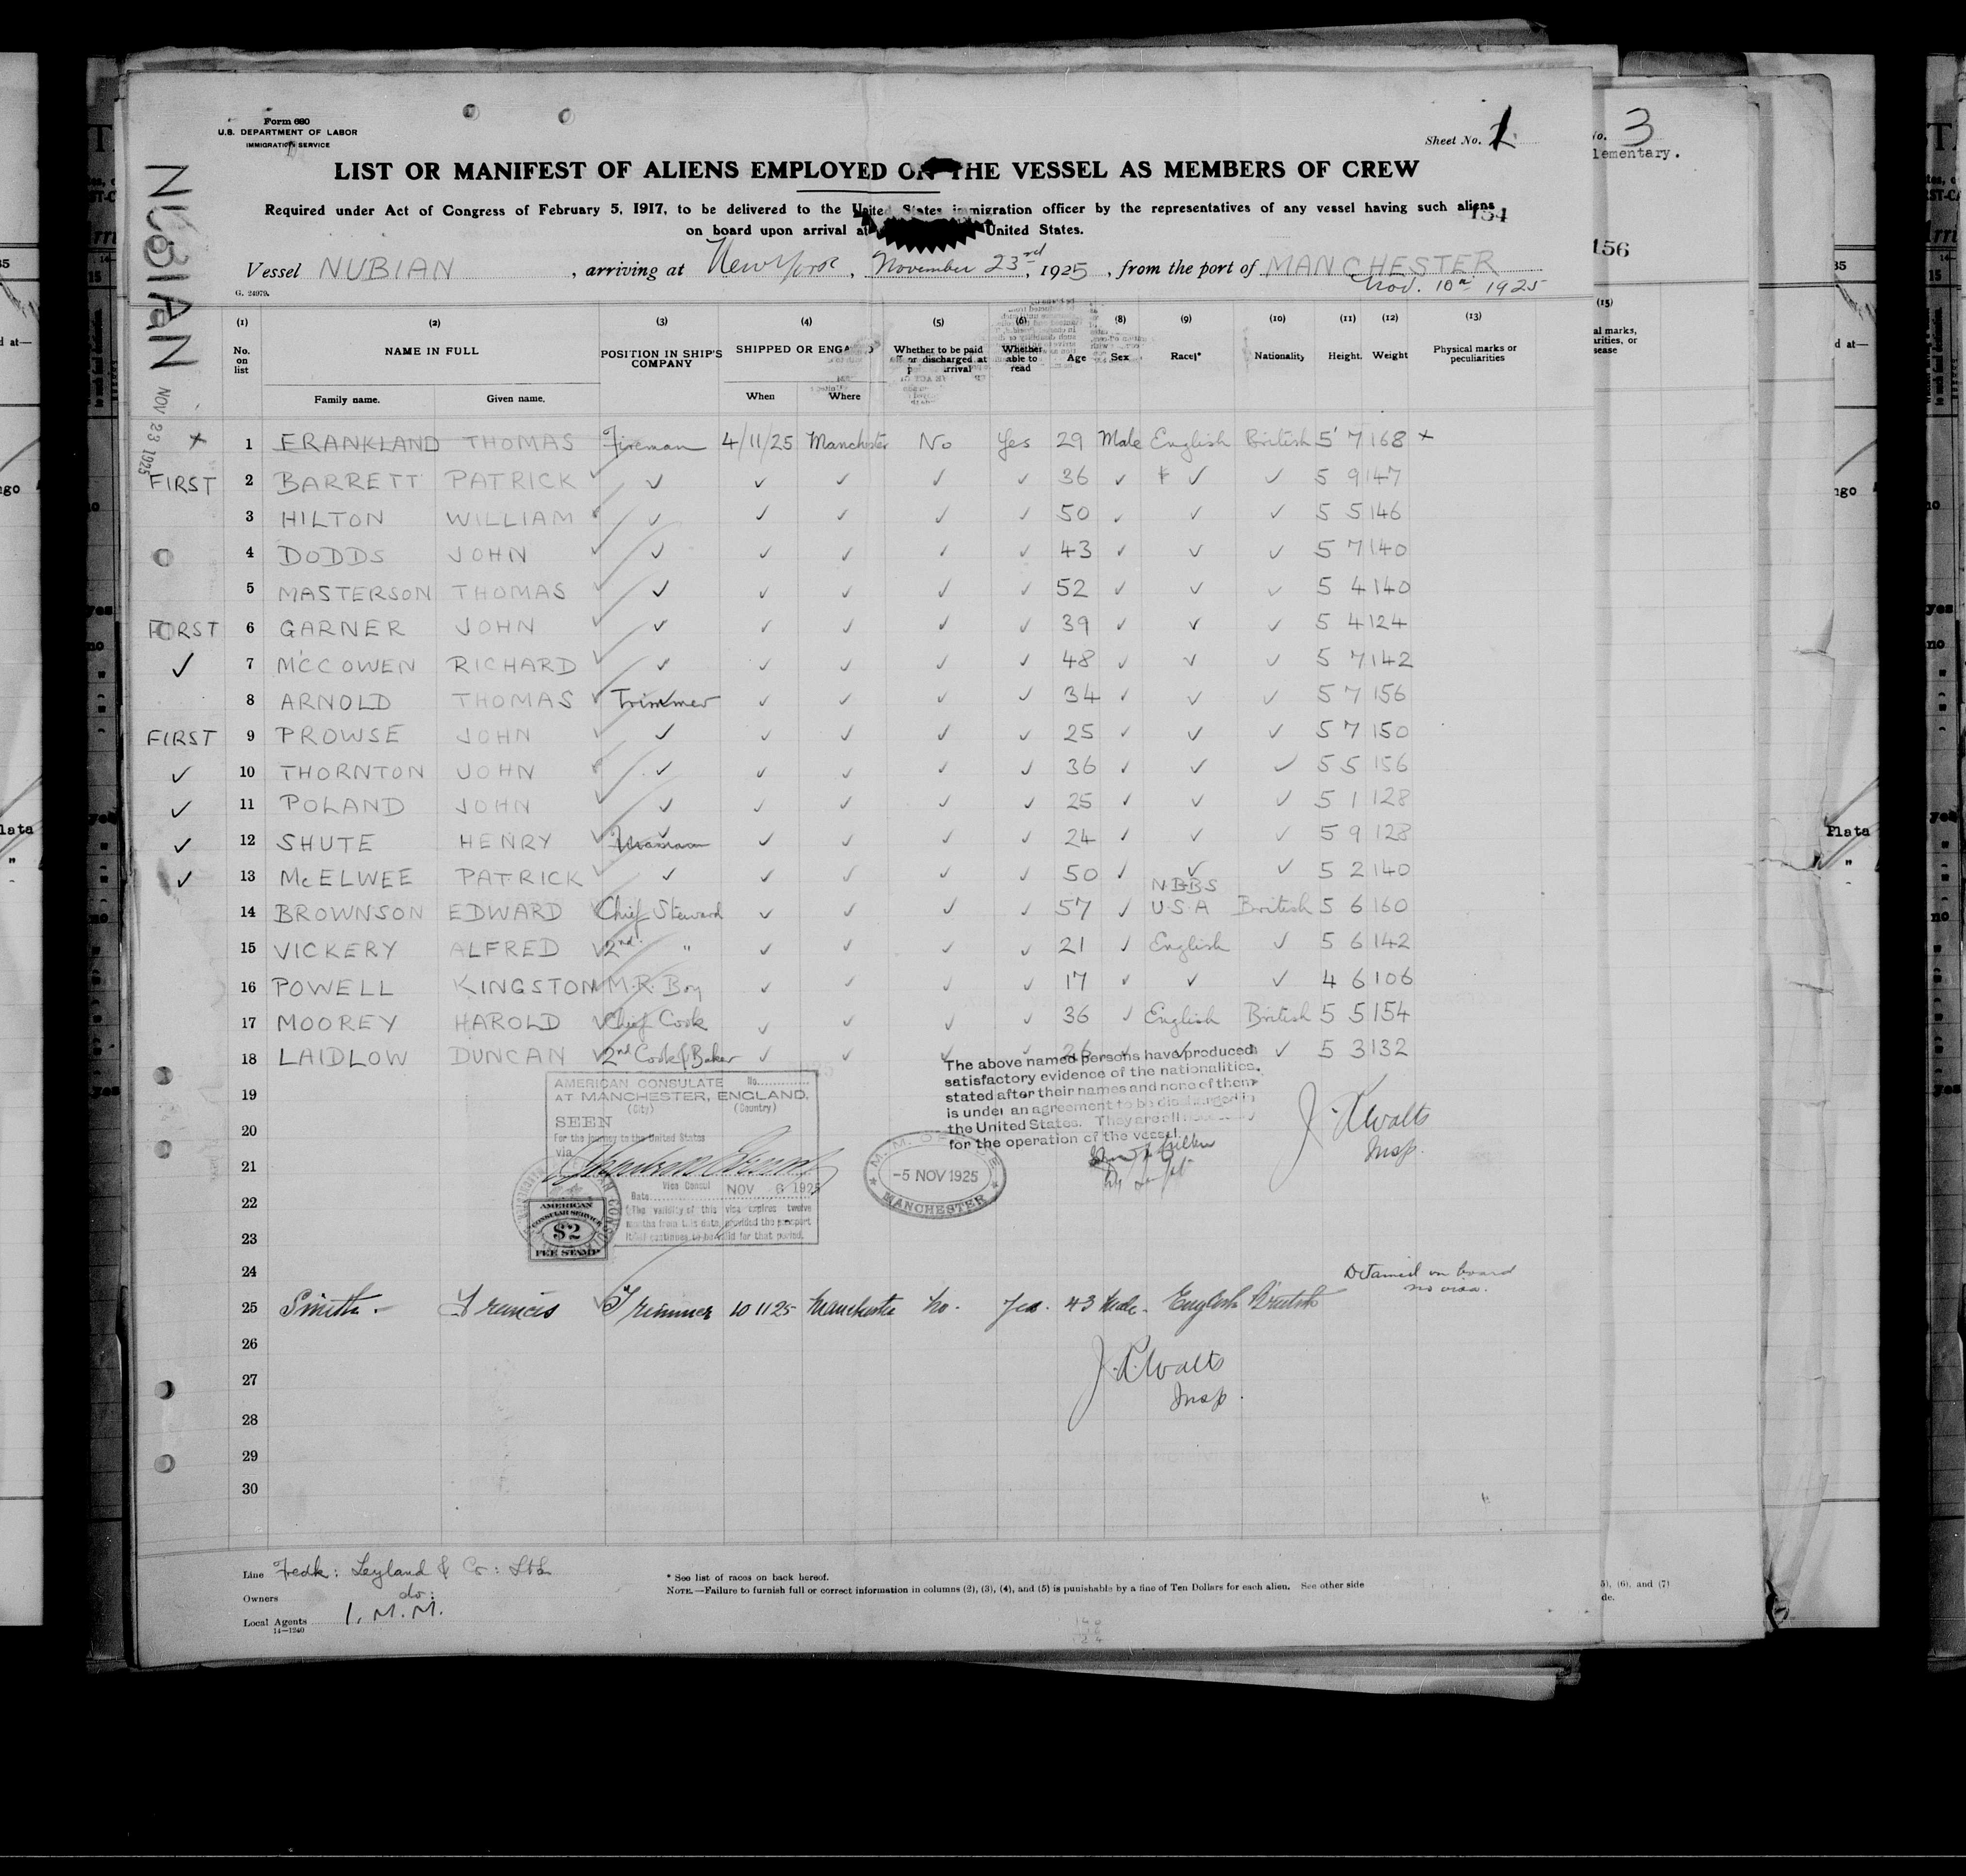 Form 680
U.S. DEPARTMENT OF LABOR
IMMIGRATION SERVICE
Sheet No. 1
3
lementary.
LIST OR MANIFEST OF ALIENS EMPLOYED ON THE VESSEL AS MEMBERS OF CREW
Required under Act of Congress of February 5, 1917, to be delivered to the United States immigration officer by the representatives of any vessel having such aliens
on board upon arrival at United States.
154
156
NUBIAN
NOV 23 1925
Vessel NUBIAN , arriving at New York , November 23rd, 1925 , from the port of MANCHESTER
Nov. 10th 1925
G. 24979.
(1) (2) (3) (4) (5) (6) (8) (9) (10) (11) (12) (13) (15)
No. on list NAME IN FULL POSITION IN SHIP'S COMPANY SHIPPED OR ENGA Whether to be paid off or discharged at arrival Whether able to read Age Sex Race* Nationality Height. Weight Physical marks or peculiarities
Family name. Given name. When Where
+ 1 FRANKLAND THOMAS Fireman 4/11/25 Manchester No Yes 29 Male English British 5' 7 168 +
FIRST 2 BARRETT PATRICK ✓ ✓ ✓ ✓ ✓ ✓ 36 ✓ ✓ ✓ 5 9 147
3 HILTON WILLIAM ✓ ✓ ✓ ✓ ✓ 50 ✓ ✓ ✓ 5 5 146
4 DODDS JOHN ✓ ✓ ✓ ✓ ✓ ✓ 43 ✓ ✓ ✓ 5 7 140
5 MASTERSON THOMAS ✓ ✓ ✓ ✓ ✓ ✓ 52 ✓ ✓ ✓ 5 4 140
FIRST 6 GARNER JOHN ✓ ✓ ✓ ✓ ✓ ✓ 39 ✓ ✓ ✓ 5 4 124
✓ 7 McCOWEN RICHARD ✓ ✓ ✓ ✓ ✓ ✓ 48 ✓ ✓ ✓ 5 7 142
8 ARNOLD THOMAS ✓ Trimmer ✓ ✓ ✓ ✓ 34 ✓ ✓ ✓ 5 7 156
FIRST 9 PROWSE JOHN ✓ ✓ ✓ ✓ ✓ ✓ 25 ✓ ✓ ✓ 5 7 150
✓ 10 THORNTON JOHN ✓ ✓ ✓ ✓ ✓ 36 ✓ ✓ ✓ 5 5 156
✓ 11 POLAND JOHN ✓ ✓ ✓ ✓ ✓ ✓ 25 ✓ ✓ ✓ 5 1 128
✓ 12 SHUTE HENRY ✓ ✓ ✓ ✓ ✓ ✓ 24 ✓ ✓ ✓ 5 9 128
✓ 13 McELWEE PATRICK ✓ ✓ ✓ ✓ ✓ ✓ 50 ✓ ✓ ✓ 5 2 140
14 BROWNSON EDWARD Chief Steward ✓ ✓ ✓ ✓ 57 ✓ U.S.A British 5 6 160
15 VICKERY ALFRED ✓ 2nd " ✓ ✓ ✓ ✓ 21 ✓ English ✓ 5 6 142
16 POWELL KINGSTON ✓ M.R. Boy ✓ ✓ ✓ ✓ 17 ✓ ✓ ✓ 4 6 106
17 MOOREY HAROLD ✓ Chief Cook ✓ ✓ ✓ ✓ 36 ✓ English British 5 5 154
18 LAIDLOW DUNCAN ✓ 2nd Cook & Baker ✓ ✓ ✓ ✓ 26 ✓ ✓ ✓ 5 3 132
The above named persons have produced
satisfactory evidence of the nationalities,
stated after their names and none of them
is under an agreement to be discharged in
the United States. They are all necessary
for the operation of the vessel.
AMERICAN CONSULATE No.
AT MANCHESTER, ENGLAND.
(City) (Country)
SEEN
For the journey to the United States
via
Vice Consul
Date NOV 6 1925
(The validity of this visa expires twelve
months from this date, provided the passport
itself continues to be valid for that period.
AMERICAN
CONSULAR SERVICE
$2
FEE STAMP
M. M. OFFICE
-5 NOV 1925
MANCHESTER
J. R. Walts
Insp.
19
20
21
22
23
24
Detained on board
no visa.
25 Smith Francis ✓ Trimmer 10 11 25 Manchester No. Yes. 43 Male English British
J. R. Walts
Insp.
26
27
28
29
30
Line Fredk: Leyland & Co: Ltd
Owners do:
Local Agents I. M. M.
14-1240
* See list of races on back hereof.
NOTE.—Failure to furnish full or correct information in columns (2), (3), (4), and (5) is punishable by a fine of Ten Dollars for each alien. See other side
5), (6), and (7)
de.